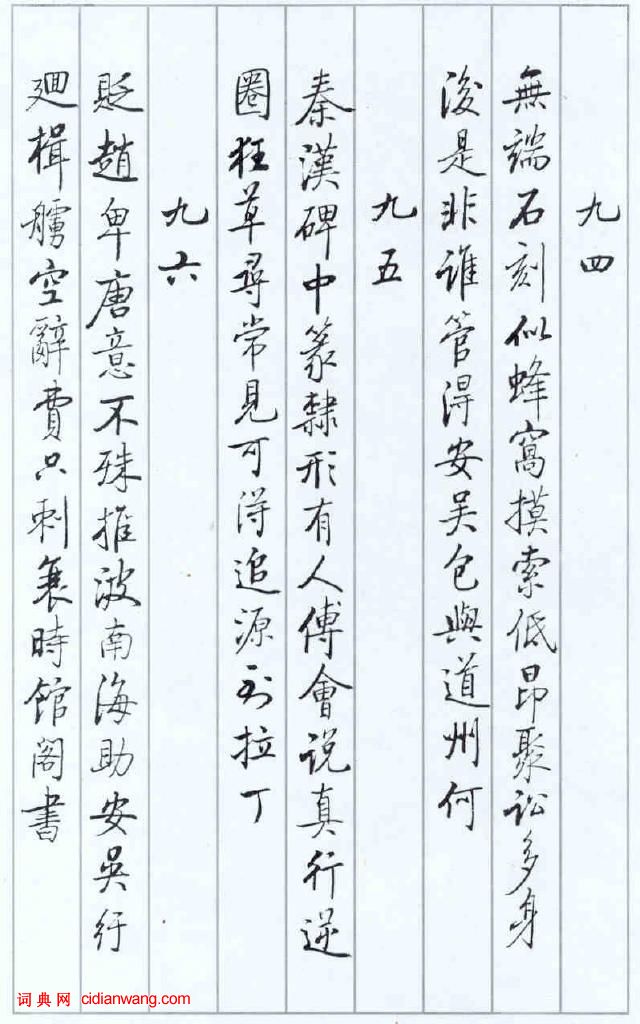 九四
無端石刻似蜂窩摸索低昂聚訟多身
後是非誰管得安吳包與道州何
九五
秦漢碑中篆隸形有人傅會说真行逆
圈狂草尋常見可得追源到拉丁
九六
貶趙卑唐意不殊推波南海助安吳紆
迴楫艣空辭費只剩衰時館阁書
词典网 cidianwang.com